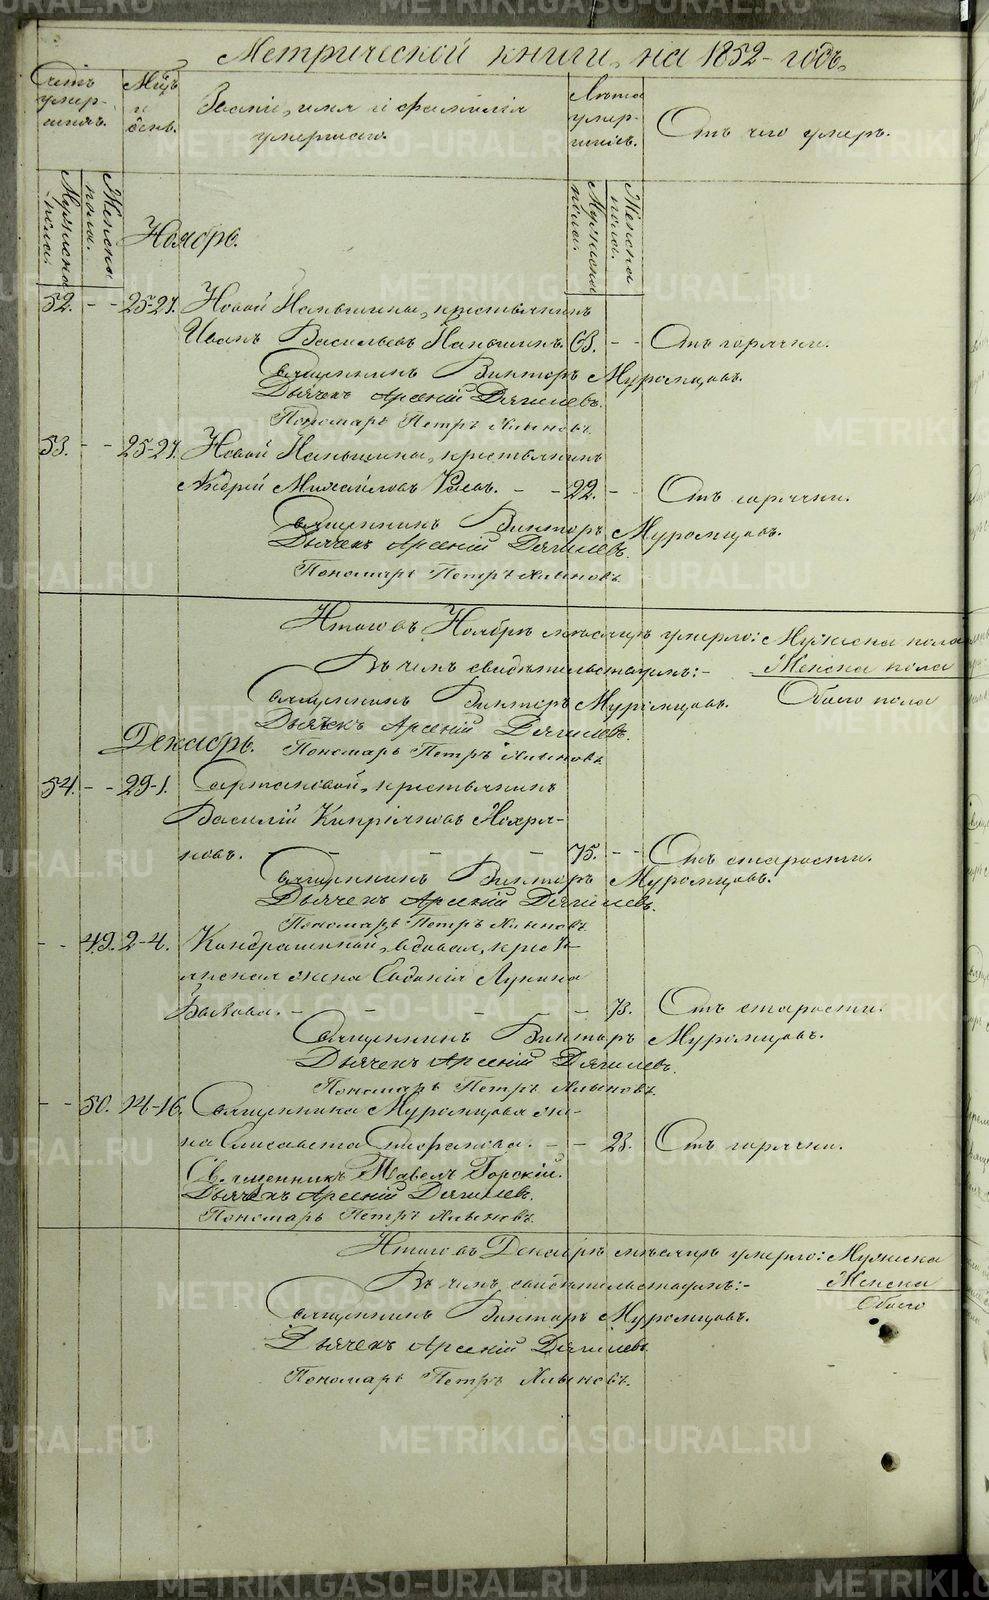 Метрической книги, на 1852-годъ,
Счетъ умер-шихъ.
Мѣц. и день.
Званіе, имя и фамилія умершаго.
Лѣта умер-шихъ.
Отъ чего умеръ.
Мужеска пола.
Женска пола.
Мужеска пола.
Женска пола.
Ноябрь.
52. - - 25-27. Новой Паньшины, крестьянинъ
Иванъ Васильевъ Паньшинъ. 63. - - Отъ горячки.
Священникъ Викторъ Муромцовъ.
Дьячекъ Арсеній Дягилевъ.
Пономарь Петръ Хлыновъ.
53. - - 25-27. Новой Паньшины, крестьянинъ
Андрей Михайловъ - - 22. - - Отъ горячки.
Священникъ Викторъ Муромцовъ.
Дьячекъ Арсеній Дягилевъ.
Пономарь Петръ Хлыновъ.
Итого въ Ноябрѣ мѣсяцѣ умерло: Мужеска пола
Въ чемъ свидѣтельствуемъ:- Женска пола
Священникъ Викторъ Муромцовъ. Обоего пола
Дьячекъ Арсеній Дягилевъ.
Декабрь. Пономарь Петръ Хлыновъ.
54. - - 29-1. крестьянинъ
Василій Кипріяновъ
новъ. - - - 75. - - Отъ старости.
Священникъ Викторъ Муромцовъ.
Дьячекъ Арсеній Дягилевъ.
Пономарь Петръ Хлыновъ.
- - 49. 2-4. вдовая, кресть-
янская жена Евдокія Лукина
- - - - 73. Отъ старости.
Священникъ Викторъ Муромцовъ.
Дьячекъ Арсеній Дягилевъ.
Пономарь Петръ Хлыновъ.
- - 50. 14-16. Священника Муромцова же-
на Елисавета Стефанова. - - 23. Отъ горячки.
Священникъ Павелъ Горскій.
Дьячекъ Арсеній Дягилевъ.
Пономарь Петръ Хлыновъ.
Итого въ Декабрѣ мѣсяцѣ умерло: Мужеска
Въ чемъ свидѣтельствуемъ:- Женска
Священникъ Викторъ Муромцовъ. Обоего
Дьячекъ Арсеній Дягилевъ
Пономарь Петръ Хлыновъ.
METRIKI.GASO-URAL.RU